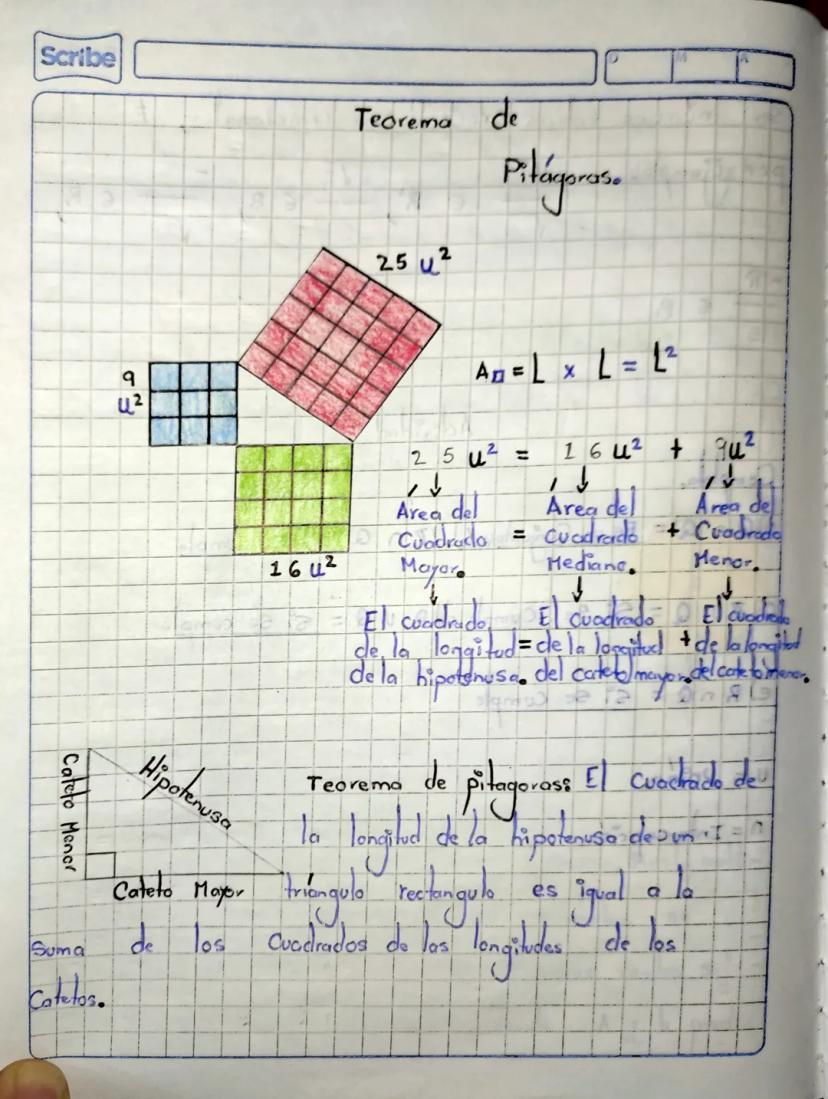 Scribe
D M A
Teorema de
Pitágoras.
25 u²
9
u²
A□ = L x L = L²
25 u² = 16 u² + 9u²
Área del Área del Área del
Cuadrado = cuadrado + Cuadrado
Mayor. Mediano. Menor.
16 u²
El cuadrado El cuadrado El cuadrado
de la longitud = de la longitud + de la longitud
de la hipotenusa. del cateto mayor. del cateto menor.
Cateto Menor
Hipotenusa
Cateto Mayor
Teorema de pitagoras: El cuadrado de
la longitud de la hipotenusa de un
triángulo rectangulo es igual a la
Suma de los cuadrados de las longitudes de los
Catetos.